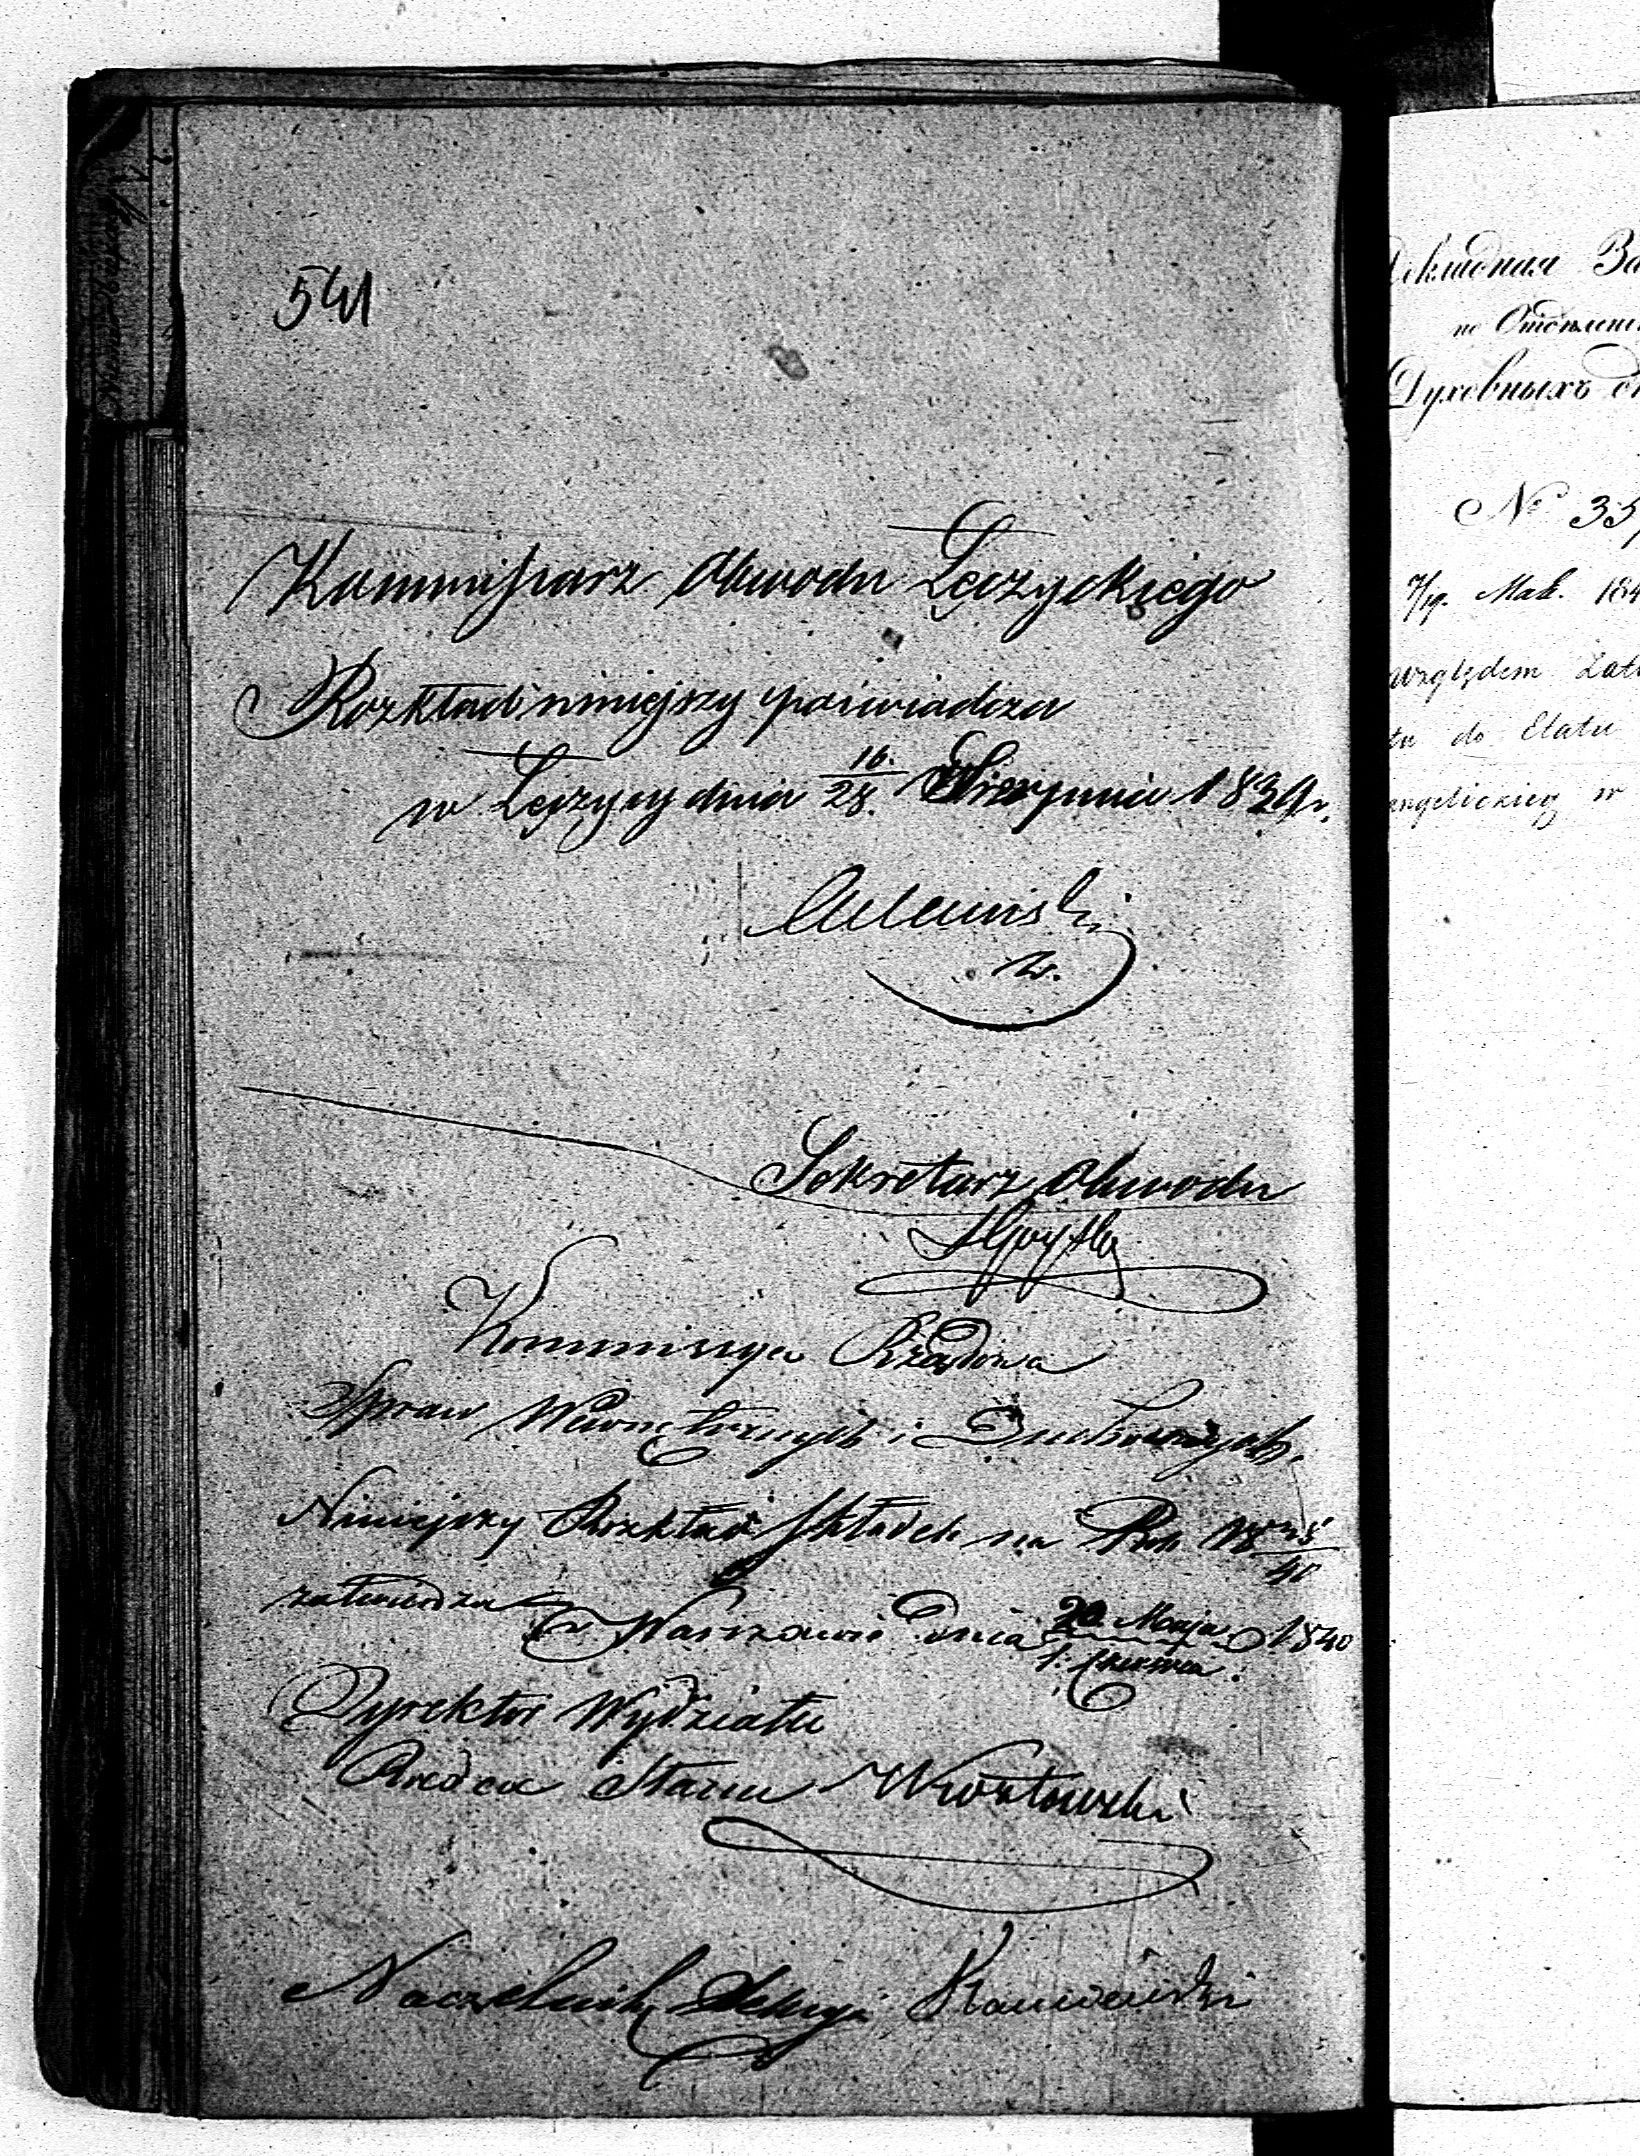 541
Kommissarz Obwodu Łęczyckiego
Rozkład niniejszy poświadcza
w Łęczycy dnia 16/28 Sierpnia 1839 r.
Sekretarz Obwodu
Kommissya Rządowa
Spraw Wewnętrznych i Duchownych.
Niniejszy Rozkład składek na Rok 18
zatwierdza
w Warszawie dnia 20 Maja / 1. Czerwca 1840
Dyrektor Wydziału
Radca Stanu
Naczelnik Sekcyi
За
по
Духовныхъ
№ 35
7/19. Mai. 184
względem Zat
tu do Etatu
angelickiey w